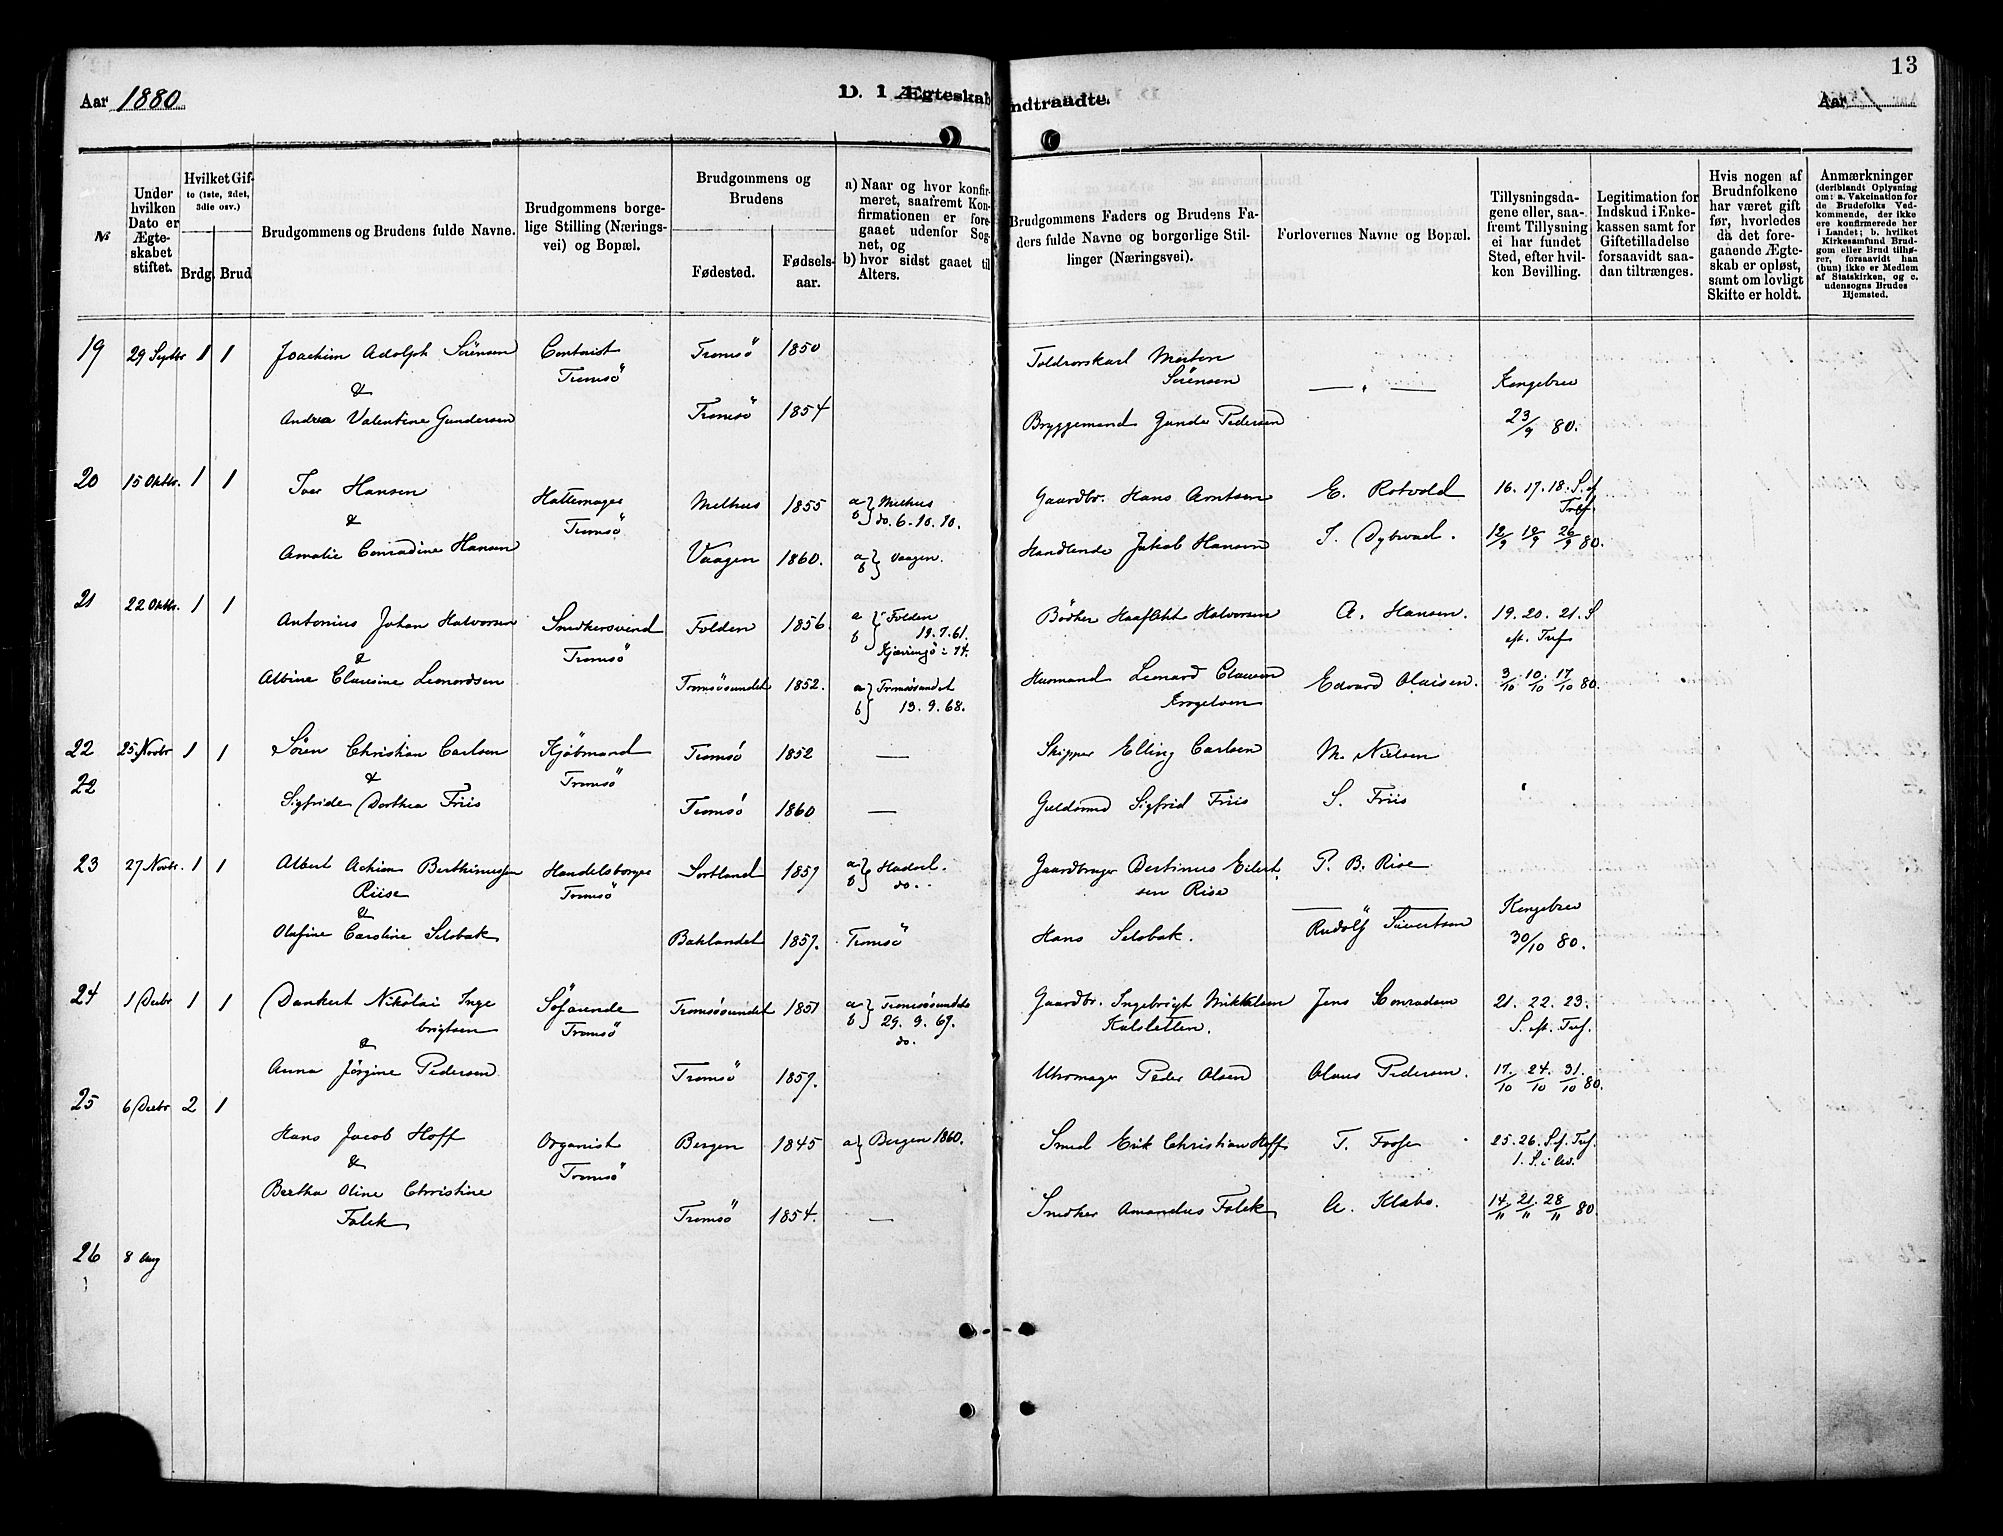 13
Aar 1880
D. 1 Ægteskab
Indtraadte.
Aar
№
Under hvilken Dato er Ægteskabet stiftet.
Hvilket Gifte (1ste, 2det, 3die osv.)
Brdg. Brud
Brudgommens og Brudens fulde Navne.
Brudgommens borgelige Stilling (Næringsvei) og Bopæl.
Brudgommens og Brudens
Fødested. Fødselsaar.
a) Naar og hvor konfirmeret, saafremt Konfirmationen er foregaaet udenfor Sognet, og
b) hvor sidst gaaet til Alters.
Brudgommens Faders og Brudens Faders fulde Navne og borgerlige Stillinger (Næringsvei).
Forlovernes Navne og Bopæl.
Tillysningsdagene eller, saafremt Tillysning ei har fundet Sted, efter hvilken Bevilling.
Legitimation for Indskud i Enkekassen samt for Giftetilladelse forsaavidt saadan tiltrænges.
Hvis nogen af Brudnfolkene har været gift før, hvorledes da det foregaaende Ægteskab er opløst, samt om lovligt Skifte er holdt.
Anmærkninger
(deriblandt Oplysning om: a. Vakcination for de Brudefolks Vedkommende, der ikke ere konfirmerede her i Landet; b. hvilket Kirkesamfund Brudgom eller Brud tilhører, forsaavidt han (hun) ikke er Medlem af Statskirken, og c. udensogns Brudes Hjemsted.
19 29 Septbr 1 1 Joachim Adolph Sörensen Contorist Tromsö 1850 Toldrorskarl Morten
& Tromsö Sörensen Kongebrev
Andrea Valentine Gundersen Tromsö 1854 Bryggemand Gunder Pedersen 23/9 80.
20 15 Oktbr. 1 1 Iver Hansen Hattemager Melhus 1855 a} Melhus Gaardbr. Hans Arntsen E. Rotvold 16. 17. 18. S. ef
& Tromsö b} do. 6. 10. 10. Tref.
Amalie Conradine Hansen Vaagen 1860. a} b} Vaagen. Handlende Jakob Hansen J. Dybwad. 12/9 19/9 26/9 80.
21 22 Oktbr. 1 1 Antonius Johan Halvorsen Snedkersvend Folden 1856. a} Folden Bödker Halvorsen A. Hansen. 19. 20. 21. S
& Tromsö b} 19. 7. 61. eft. Tref.
Kjerringö
Albine Clausine Leonardsen Tromsösundet 1852. a} Tromsösundet Husmand Leonard Clausen Edvard Olaisen. 3/10 10/10 17/10 80.
b} 13. 9. 68.
22 25 Novbr 1 1 Sören Christian Carlsen Kjöbmand Tromsö 1852 — Skipper Elling Carlsen M. Nielsen
22 & Tromsö
Sigfride Dorthea Friis Tromsö 1860 — Guldsmed Sigfrid Friis S. Friis
23 27 Novbr. 1 1 Albert Achim Berthinussen Handelsborger Sortland 1857 a} Hadsel. Gaardbruger Bertinus Eilert- P. B. Rise
Riise Tromsö b} do. sen Rise
& Kongebrev
Olafine Caroline Selsbak Baklandet 1857. Tromsö Hans Selsbak. Rudolf Sivertsen 30/10 80.
24 1 Decbr 1 1 Dankert Nikolai Inge Tromsösundet 1851 a} Tromsösundet Gaardbr. Ingebrigt Mikkelsen Jens Conradsen 21. 22. 23.
brigtsen Tromsö b} 29. 9. 67. Kalsletten. S. eft. Tref.
& do.
Anna Jörgine Pedersen Tromsö 1857. Uhrmager Peder Olsen Olaus Pedersen. 17/10 24/10 31/10 80.
25 6 Decbr 2 1
Hans Jacob Hoff Organist Bergen 1845 a} Bergen 1860. Smed Erik Christian Hoff 25. 26. S. f. Tref.
& Tromsö 1. S. i Adv.
Bertha Oline Christine Tromsö 1854. — Snedker Amandus Falck A. Klæbo. 14/11 21/11 28/11 80.
Falck
26 8 Aug